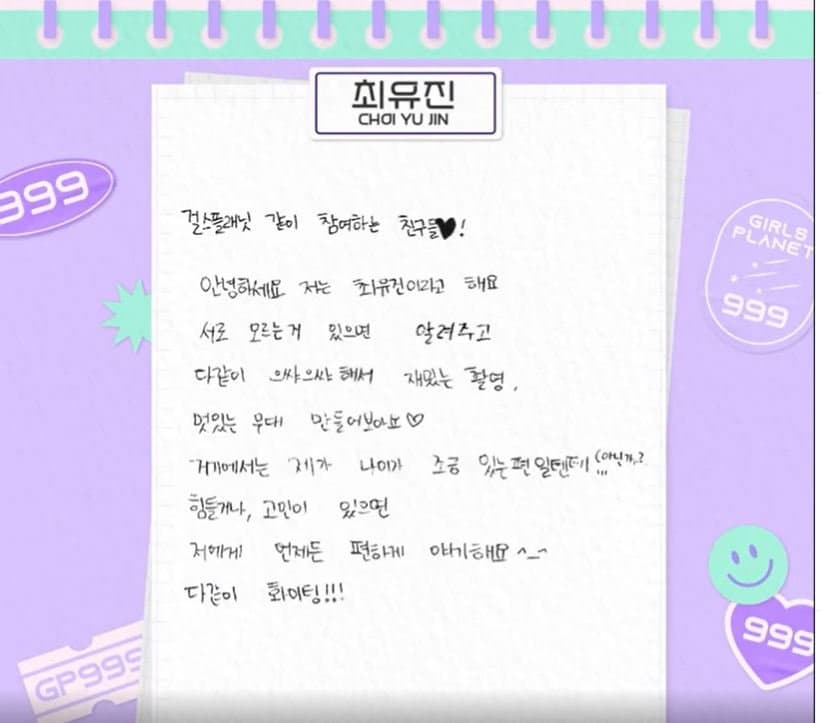 최유진
CHOI YU JIN
999
GIRLS
PLANET
999
걸스플래닛 같이 참여하는 친구들♥!
안녕하세요 저는 최유진이라고 해요
서로 모르는거 있으면 알려주고
다같이 으쌰으쌰해서 재밌는 촬영,
멋있는 무대 만들어보아요♡
거기에서는 제가 나이가 조금 있는편일텐데(아닌가..?
힘들거나, 고민이 있으면
저에게 언제든 편하게 얘기해요 ^_^
다같이 화이팅!!!
999
GP999